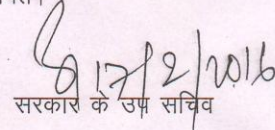 17/2/2016
सरकार के उप सचिव